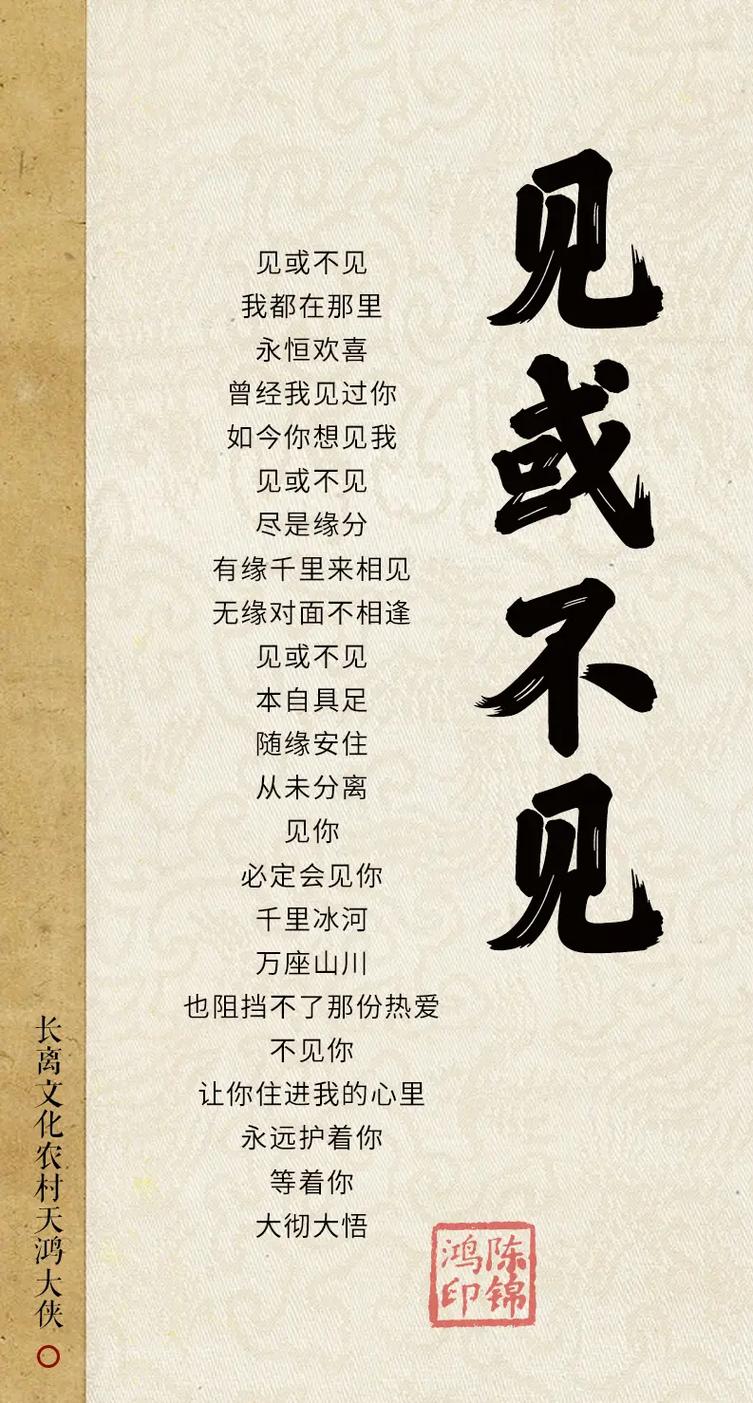 见或不见
见或不见
我都在那里
永恒欢喜
曾经我见过你
如今你想见我
见或不见
尽是缘分
有缘千里来相见
无缘对面不相逢
见或不见
本自具足
随缘安住
从未分离
见你
必定会见你
千里冰河
万座山川
也阻挡不了那份热爱
不见你
让你住进我的心里
永远护着你
等着你
大彻大悟
陈锦鸿印
长离文化农村天鸿大侠